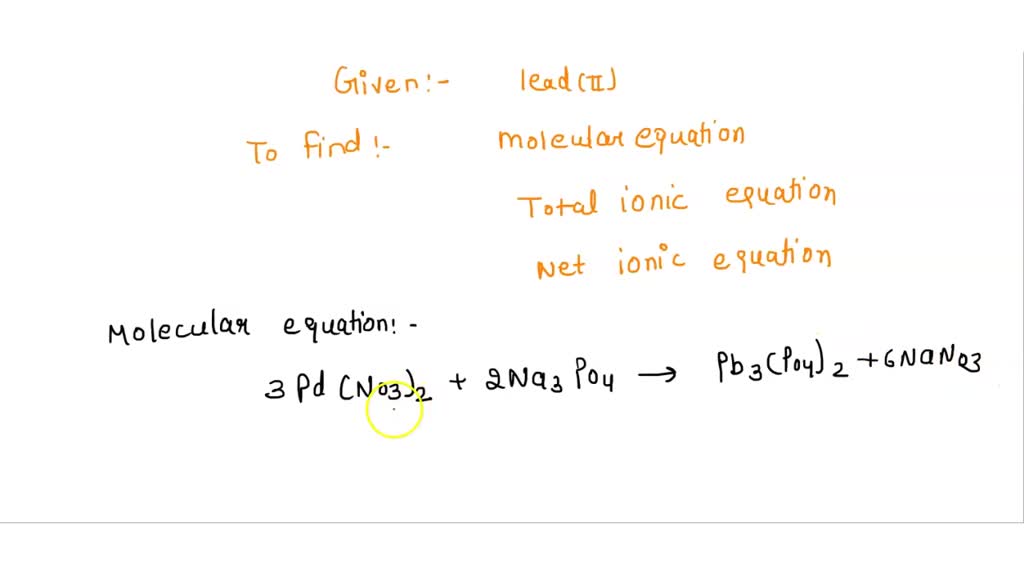 Given:- lead(II)
To find:- Molecular equation
Total ionic equation
Net ionic equation
Molecular equation:-
3 Pd (NO3)2 + 2Na3 PO4 → Pb3(PO4)2 + 6NaNO3